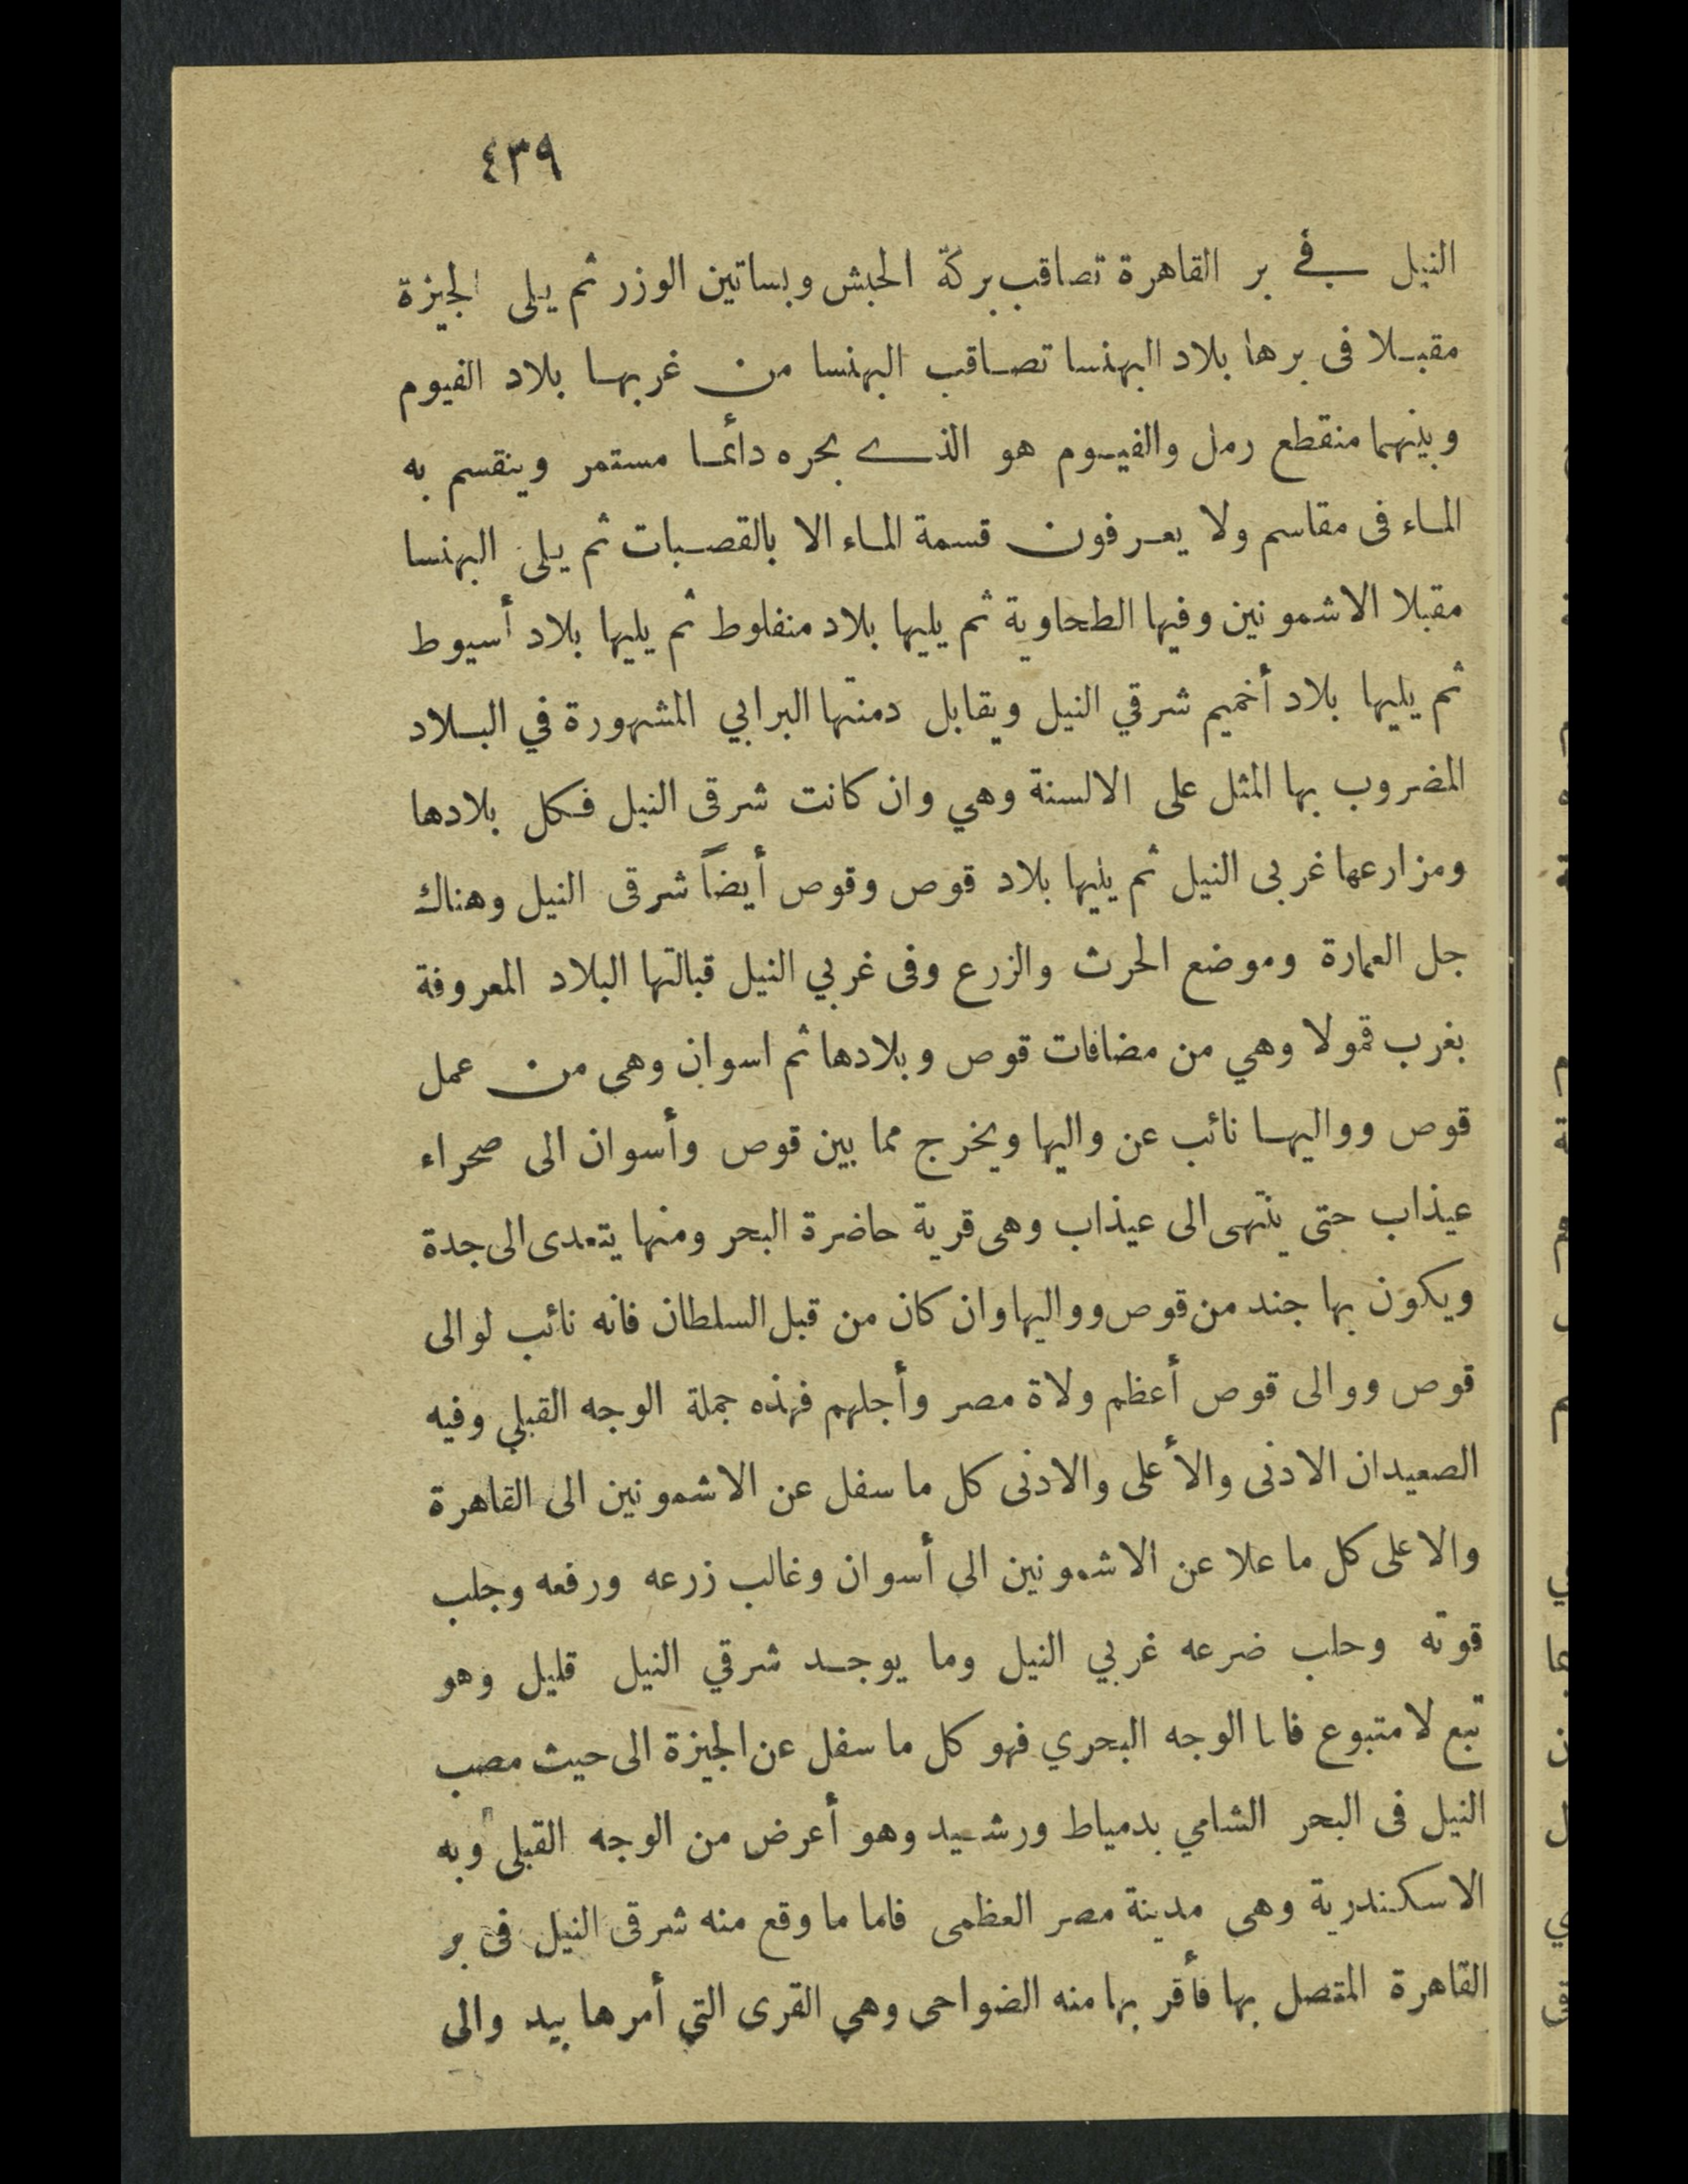 ٤٣٩
النيل في بر القاهرة تصاقب بركة الحبش وبساتين الوزر ثم يلى الجيزة
مقبلا فى برها بلاد البهنسا تصاقب البهنسا من غربها بلاد الفيوم
وبينهما منقطع رمل والفيوم هو الذى بحره دائما مستمر وينقسم به
الماء فى مقاسم ولا يعرفون قسمة الماء الا بالقصبات ثم يلى البهنسا
مقبلا الاشمونين وفيها الطحاوية ثم يليها بلاد منفلوط ثم يليها بلاد أسيوط
ثم يليها بلاد أخميم شرقي النيل ويقابل دمنتها البرابي المشهورة في البلاد
المضروب بها المثل على الالسنة وهي وان كانت شرقى النيل فكل بلادها
ومزارعها غربى النيل ثم يليها بلاد قوص وقوص أيضاً شرقى النيل وهناك
جل العمارة وموضع الحرث والزرع وفى غربي النيل قبالتها البلاد المعروفة
بغرب قمولا وهي من مضافات قوص وبلادها ثم اسوان وهى من عمل
قوص وواليها نائب عن واليها ويخرج مما بين قوص وأسوان الى صحراء
عيذاب حتى ينتهى الى عيذاب وهى قرية حاضرة البحر ومنها يتعدى الى جدة
ويكون بها جند من قوص وواليها وان كان من قبل السلطان فانه نائب لوالى
قوص ووالى قوص أعظم ولاة مصر وأجلهم فهذه جملة الوجه القبلي وفيه
الصعيدان الادنى والأعلى والادنى كل ما سفل عن الاشمونين الى القاهرة
والاعلى كل ما علا عن الاشمونين الى أسوان وغالب زرعه ورفعه وجلب
قوته وحلب ضرعه غربي النيل وما يوجد شرقي النيل قليل وهو
تبع لا متبوع فاما الوجه البحري فهو كل ما سفل عن الجيزة الى حيث مصب
النيل فى البحر الشامي بدمياط ورشيد وهو أعرض من الوجه القبلى وبه
الاسكندرية وهى مدينة مصر العظمى فاما ما وقع منه شرقى النيل فى بر
القاهرة المتصل بها فأقر بها منه الضواحى وهي القرى التي أمرها بيد والى